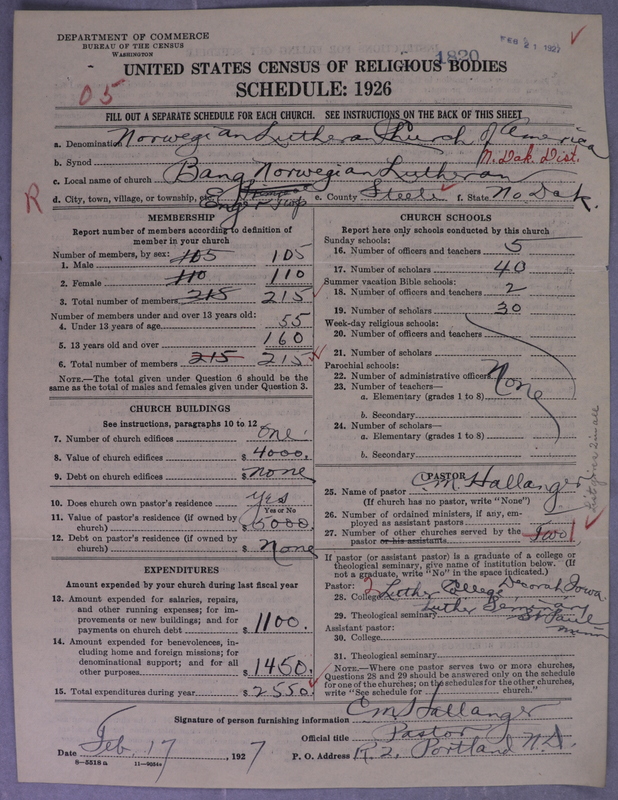 DEPARTMENT OF COMMERCE
BUREAU OF THE CENSUS
WASHINGTON
FEB 21 1927
1820
UNITED STATES CENSUS OF RELIGIOUS BODIES
05
SCHEDULE: 1926
FILL OUT A SEPARATE SCHEDULE FOR EACH CHURCH. SEE INSTRUCTIONS ON THE BACK OF THIS SHEET
a. Denomination Norwegian Lutheran Church of America
b. Synod N. Dak. Dist.
c. Local name of church Bang Norwegian Lutheran
R
d. City, town, village, or township, etc. e. County Steele f. State No Dak.
MEMBERSHIP
Report number of members according to definition of
member in your church
Number of members, by sex:
1. Male 105 105
2. Female 110 110
3. Total number of members 215 215
Number of members under and over 13 years old:
4. Under 13 years of age 55
5. 13 years old and over 160
6. Total number of members 215 215
NOTE.—The total given under Question 6 should be the
same as the total of males and females given under Question 3.
CHURCH BUILDINGS
See instructions, paragraphs 10 to 12
7. Number of church edifices One
8. Value of church edifices $ 4000.
9. Debt on church edifices $ None
10. Does church own pastor's residence Yes
Yes or No
11. Value of pastor's residence (if owned by
church) $ 5000.
12. Debt on pastor's residence (if owned by
church) $ None
EXPENDITURES
Amount expended by your church during last fiscal year
13. Amount expended for salaries, repairs,
and other running expenses; for im-
provements or new buildings; and for
payments on church debt $ 1100.
14. Amount expended for benevolences, in-
cluding home and foreign missions; for
denominational support; and for all
other purposes $ 1450.
15. Total expenditures during year $ 2550.
CHURCH SCHOOLS
Report here only schools conducted by this church
Sunday schools:
16. Number of officers and teachers 5
17. Number of scholars 40
Summer vacation Bible schools:
18. Number of officers and teachers 2
19. Number of scholars 30
Week-day religious schools:
20. Number of officers and teachers
21. Number of scholars
Parochial schools:
22. Number of administrative officers None
23. Number of teachers—
a. Elementary (grades 1 to 8)
b. Secondary
24. Number of scholars—
a. Elementary (grades 1 to 8)
b. Secondary
PASTOR
25. Name of pastor C M Hallanger
(If church has no pastor, write "None")
26. Number of ordained ministers, if any, em-
ployed as assistant pastors
27. Number of other churches served by the
pastor or his assistants Two 1
If pastor (or assistant pastor) is a graduate of a college or
theological seminary, give name of institution below. (If
not a graduate, write "No" in the space indicated.)
Pastor: 2
28. College Luther College, Decorah Iowa
29. Theological seminary Luther Seminary St Paul Minn
Assistant pastor:
30. College
31. Theological seminary
NOTE.—Where one pastor serves two or more churches,
Questions 28 and 29 should be answered only on the schedule
for one of the churches; on the schedules for the other churches,
write "See schedule for church."
Signature of person furnishing information C M Hallanger
Official title Pastor
Date Feb. 17, 1927 P. O. Address R. 2, Portland N.D.
8—5518 a 11—9034a